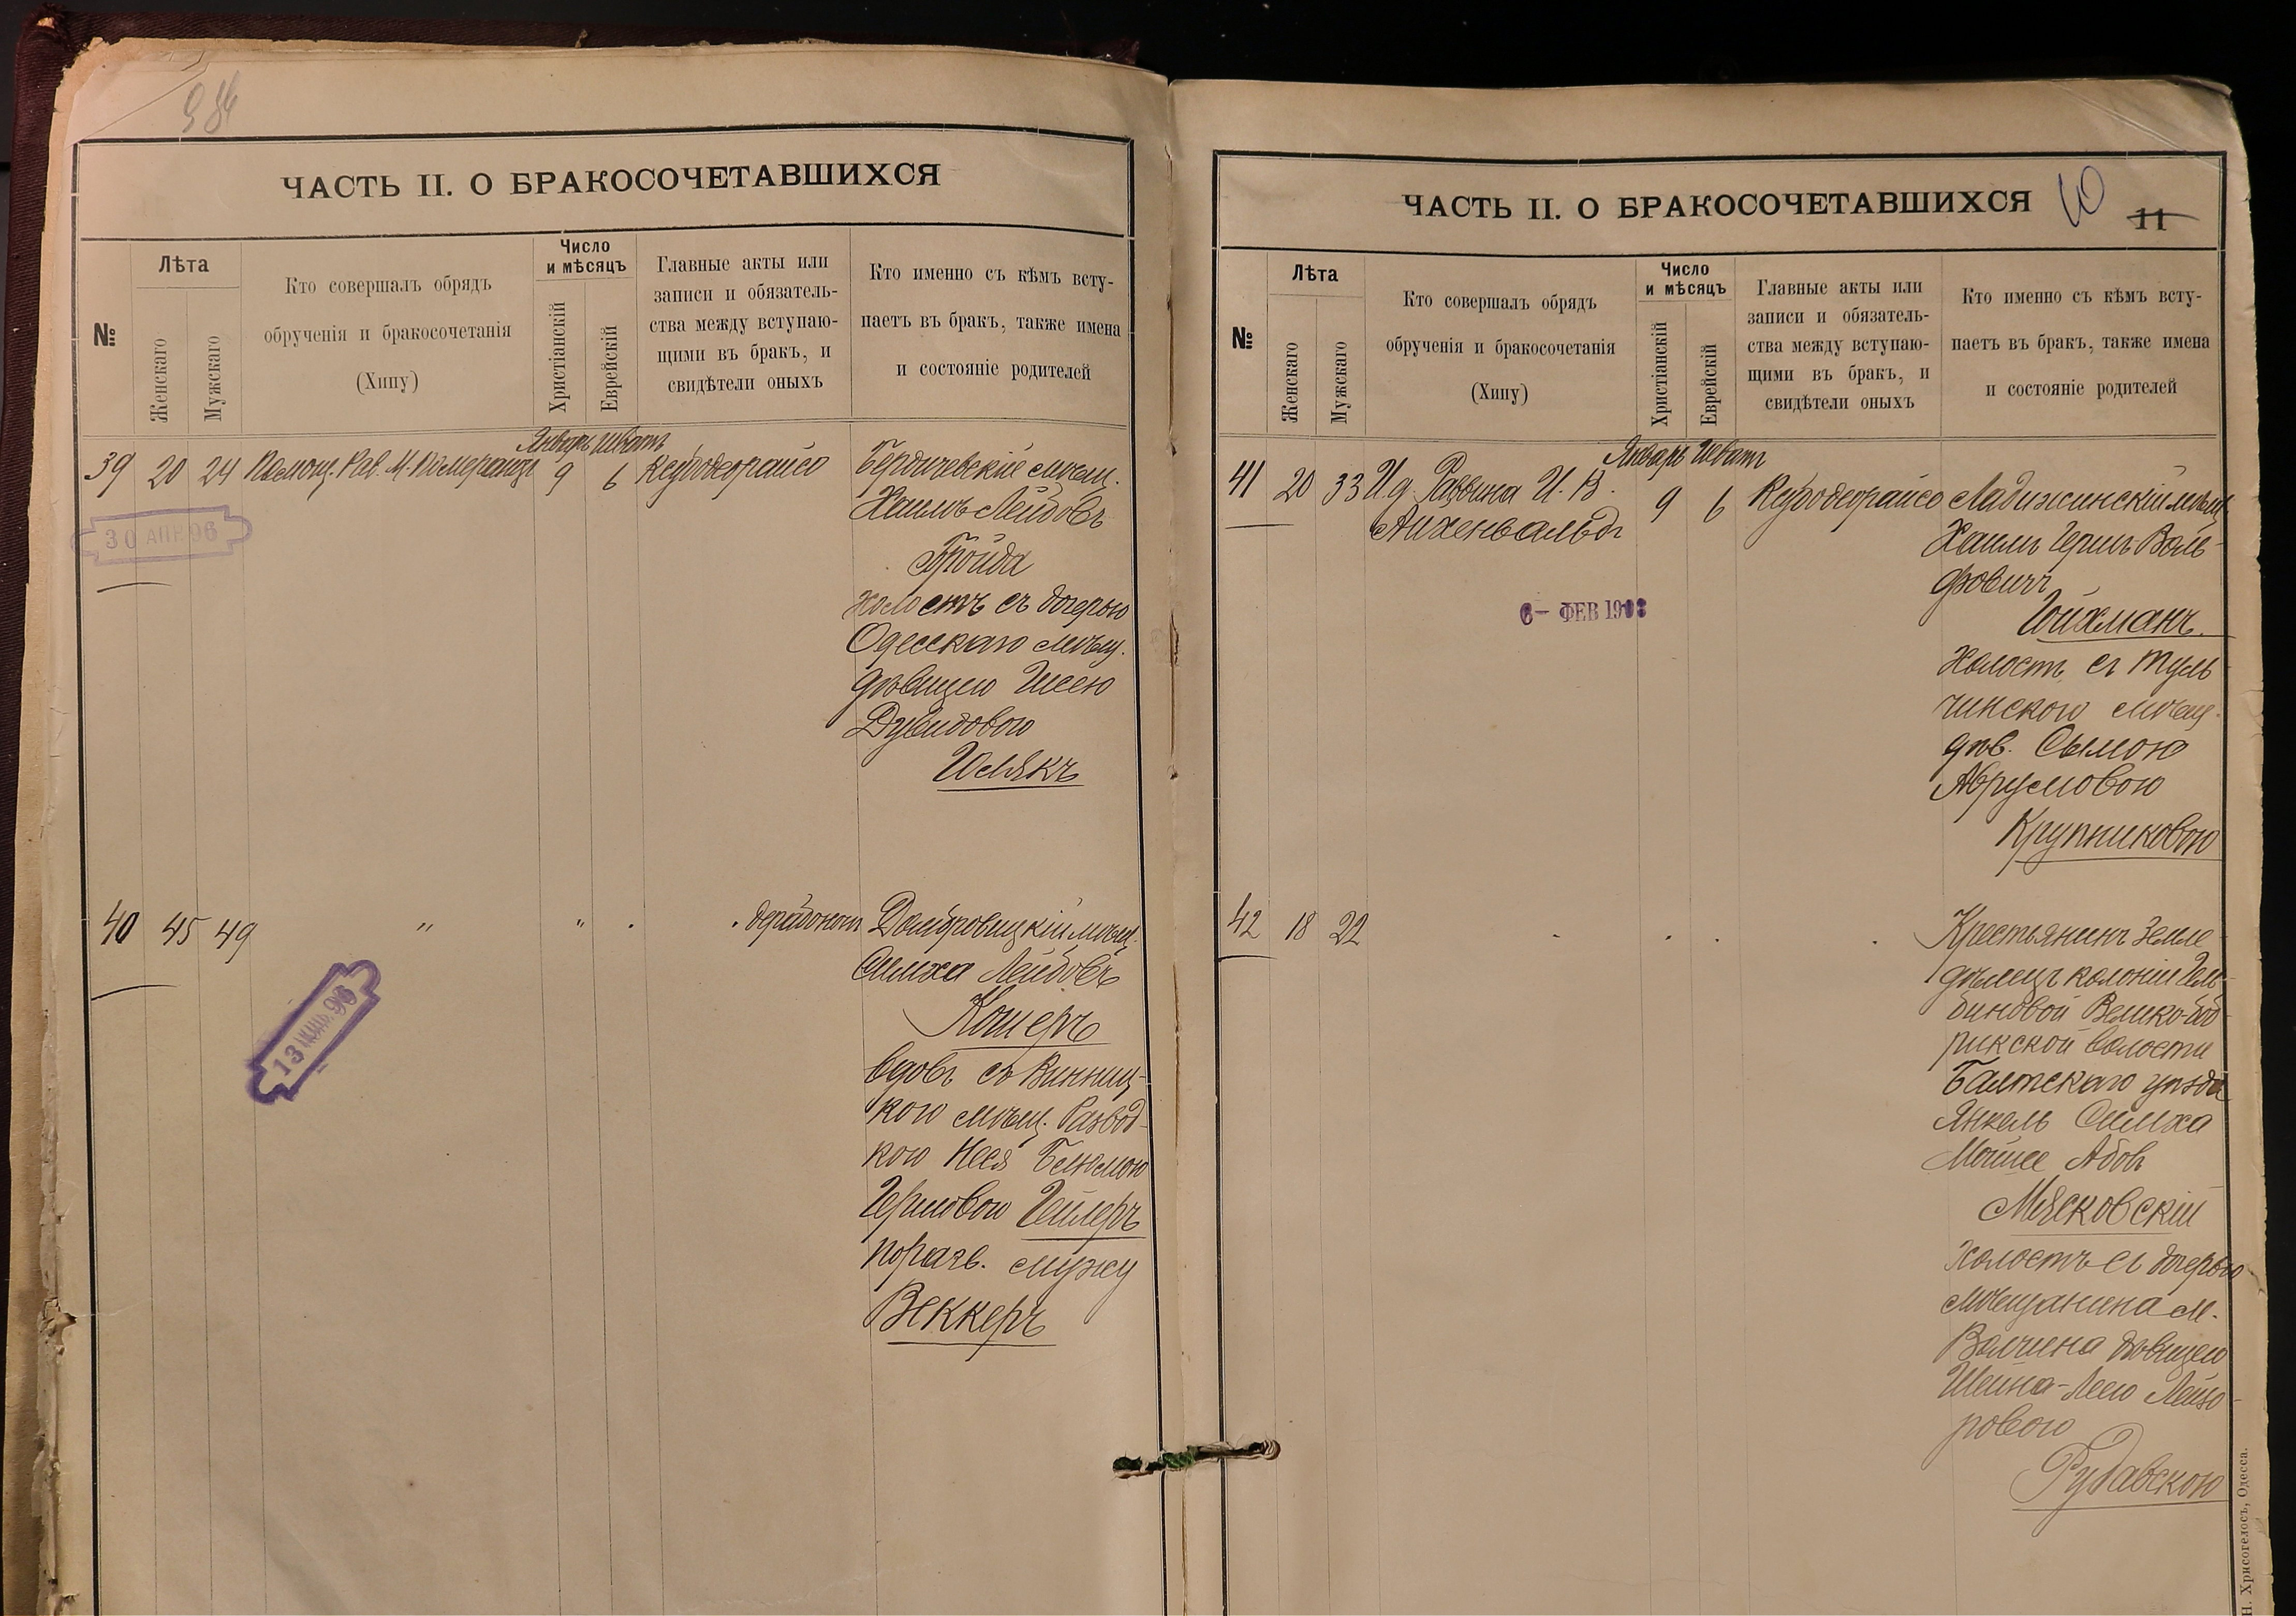 984
ЧАСТЬ II. О БРАКОСОЧЕТАВШИХСЯ
№
Лѣта
Женскаго
Мужскаго
Кто совершалъ обрядъ
обрученія и бракосочетанія
(Хипу)
Число
и мѣсяцъ
Христіанскій
Еврейскій
Главные акты или
записи и обязатель-
ства между вступаю-
щими въ бракъ, и
свидѣтели оныхъ
Кто именно съ кѣмъ всту-
паетъ въ бракъ, также имена
и состояніе родителей
Январь Шватъ
39 20 24 Помощ. Рав. М. Померанцъ 9 6 Кесубодеорайсо
Бердичевскій мѣщ.
Хаимъ Лейбовъ
Бройда
холостъ съ дочерью
Одесскаго мѣщ.
дѣвицею Шсею
Дувидовою
Шлякъ
30 АПР 96
40 45 49 " " .
Домбровицкій мѣщ.
Симха Лейбовъ
Кошеръ
вдовъ съ Винниц-
кою мѣщ. Развод-
кою Неся Блюмою
Гершовою Гейлеръ
по разв. мужу
Веккеръ
13 96
ЧАСТЬ II. О БРАКОСОЧЕТАВШИХСЯ
10
11
№
Лѣта
Женскаго
Мужскаго
Кто совершалъ обрядъ
обрученія и бракосочетанія
(Хипу)
Число
и мѣсяцъ
Христіанскій
Еврейскій
Главные акты или
записи и обязатель-
ства между вступаю-
щими въ бракъ, и
свидѣтели оныхъ
Кто именно съ кѣмъ всту-
паетъ въ бракъ, также имена
и состояніе родителей
Январь Шватъ
41 20 33 И. д. Раввина И. В. 9 6 Кесубодеорайсо
Айхенвальдъ
6 - ФЕВ
Ладижинскій мѣщ.
Хаимъ Гершъ Воль-
фовичъ
Гойхманъ.
Холостъ съ Туль-
чинскою мѣщ.
дѣв. Сымою
Абрумовою
Крупниковою
42 18 22 . . . .
Крестьянинъ Земле-
дѣлецъ колоніи Гель-
биновой Велико-Боб-
рикской волости
Балтскаго уѣзда
Янкель Симха
Мойше Абовъ
Мясковскій
Холостъ съ дочерью
мѣщанина м.
Волчина дѣвицею
Шейна-Леею Лейзо-
ровою
Рудавскою
Н. Хрисогелосъ, Одесса.